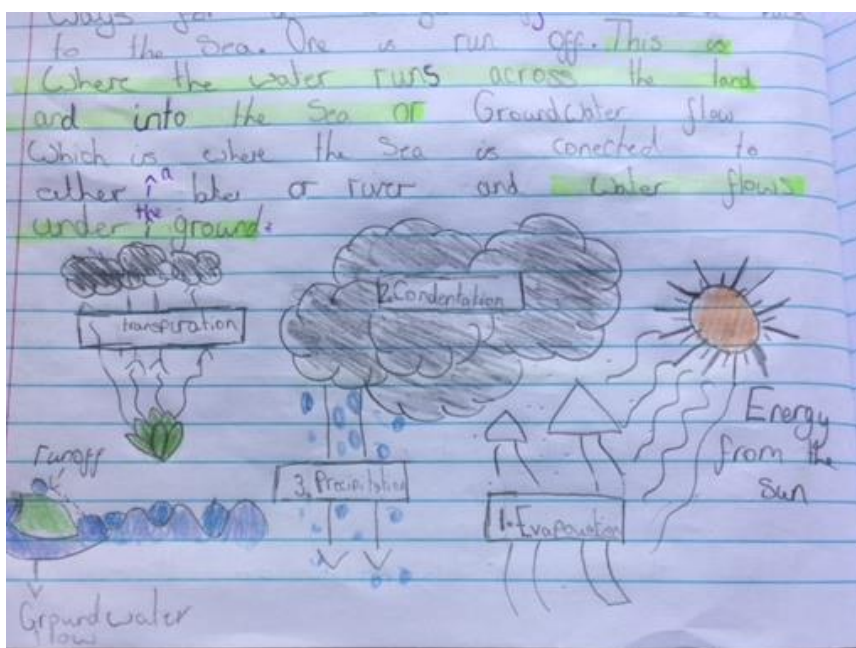 to the Sea. One is run off. This is
Where the water runs across the land
and into the Sea or GroundWater flow
Which is where the Sea is conected to
either a lake or river and water flows
under the ground.
transpiration
2. Condentation
Energy
from the
Sun
runoff
3. Precipitation
1. Evaporation
Groundwater
flow